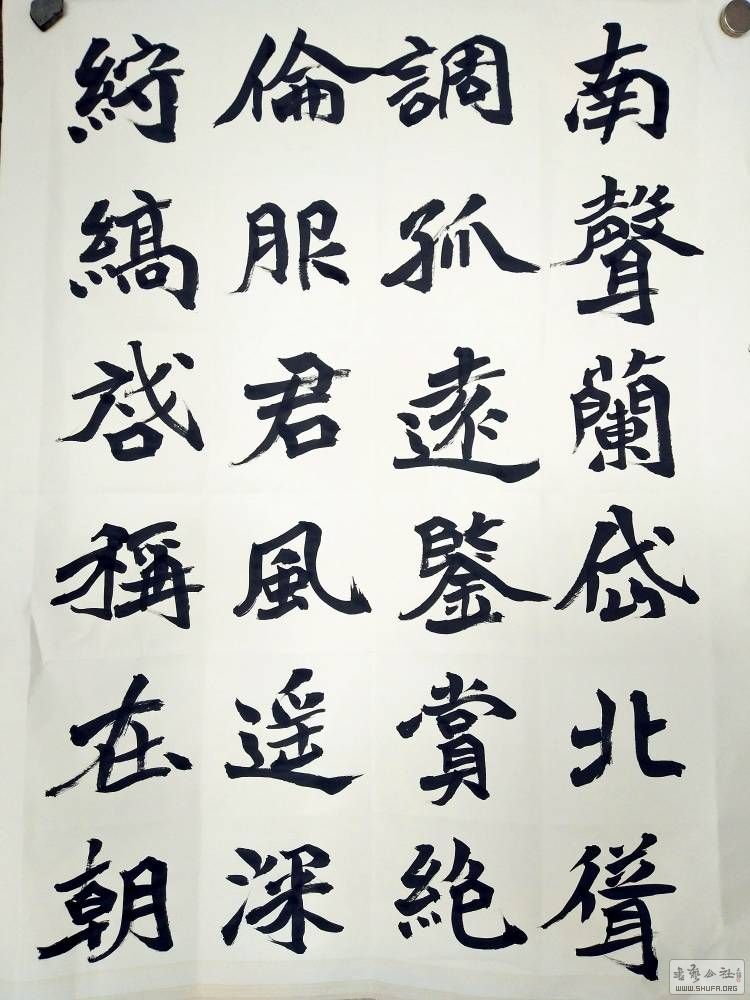 南聲蘭岱北聳
調孤遠鑒賞絶
倫服君風遥深
紵縞啓稱在朝
WWW.SHUFA.ORG